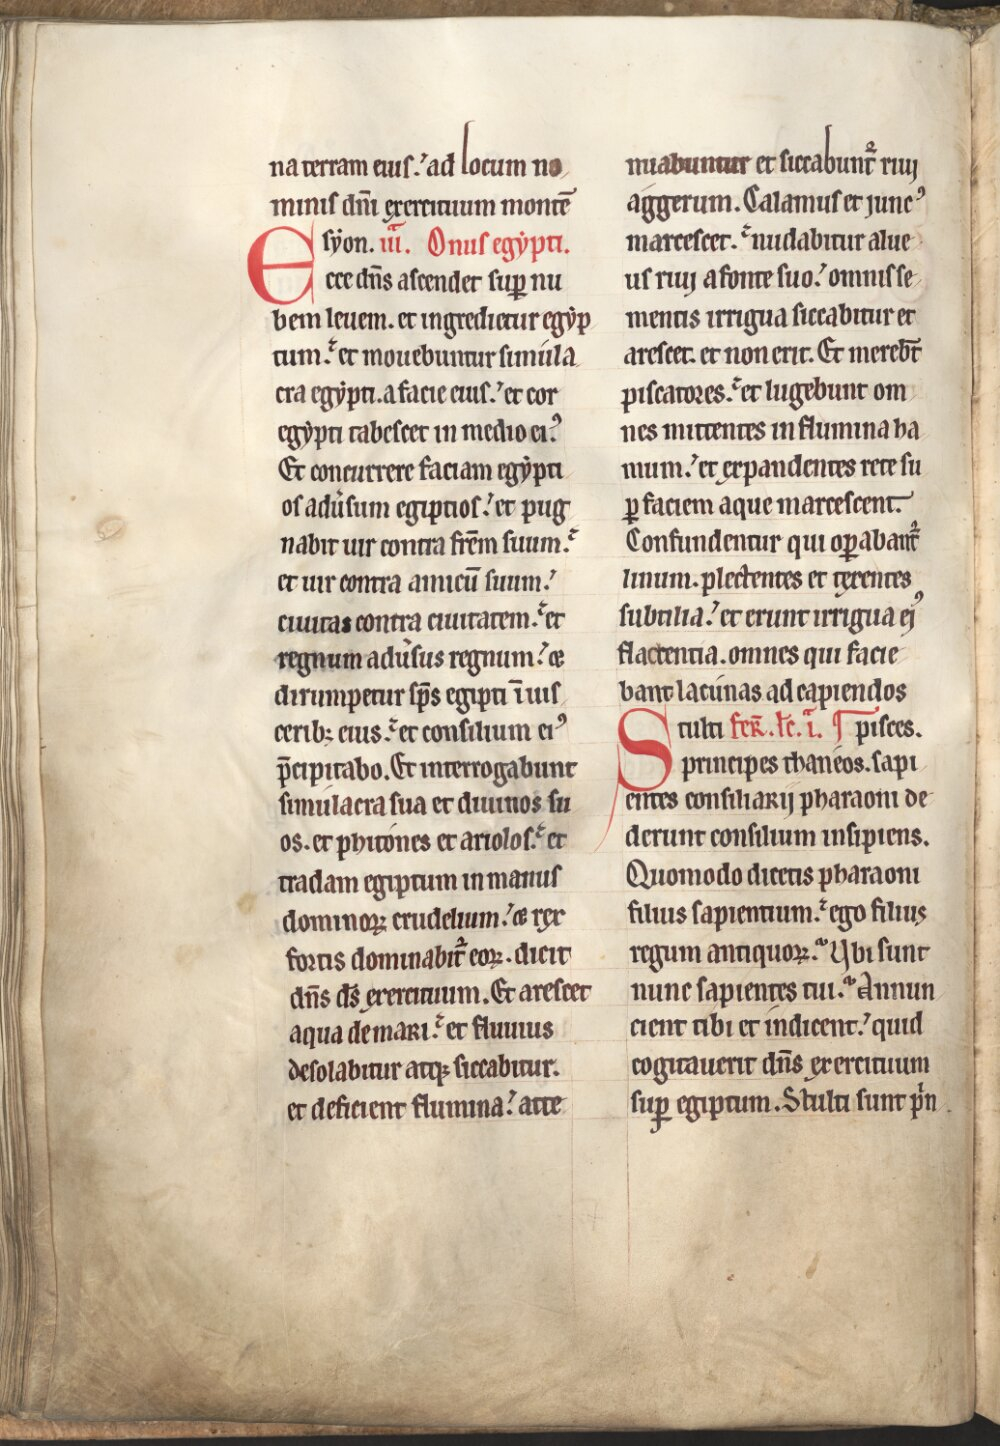 na terram eius.' ad locum no
minis dn̄i exercituum montē
syon. iii. Onus egypti.
Ecce dn̄s ascendet sup̱ nu
bem leuem. et ingredietur egyp
tum. et mouebuntur simula
cra egypti. a facie eius.' et cor
egypti tabescet in medio ei⁹
Et concurrere faciam egypti
os adu̓sum egiptios.' et pug
nabit uir contra frēm suum.
et uir contra amicū suum.'
ciuitas contra ciuitatem. et
regnum adu̓sus regnum.' &
dirumpetur sp̄s egipti ī uis
cerib; eius. et consilium ei⁹
p̄cipitabo. Et interrogabunt
simulacra sua et diuinos su
os. et phitones et ariolos. et
tradam egiptum in manus
dominoꝝ crudelium.' & rex
fortis dominabit᷑ eoꝝ. dicit
dn̄s ds̄ exercituum. Et arescet
aqua de mari. et fluuius
desolabitur atq; siccabitur.
et deficient flumina.' atte
nuabuntur et siccabunt᷑ riuj
aggerum. Calamus et junc⁹
marcescet. nudabitur alue
us riuj a fonte suo.' omnis se
mentis irrigua siccabitur et
arescet. et non erit. Et mereb̄t
piscatores. et lugebunt om
nes mittentes in flumina ha
mum.' et expandentes rete su
ꝑ faciem aque marcescent.
Confundentur qui oꝑabant᷑
linum. plectentes et texentes
subtilia.' et erunt irrigua ej⁹
flactentia. omnes qui facie
bant lacunas ad capiendos
Stulti fer̄. lc̄. i. ¶ pisces.
principes thaneos. sapi
entes consiliarij pharaoni de
derunt consilium insipiens.
Quomodo dicetis pharaoni
filius sapientium. ego filius
regum antiquoꝝ. Vbi sunt
nunc sapientes tui. Annun
cient tibi et indicent.' quid
cogitauerit dn̄s exercituum
sup̱ egiptum. Stulti sunt p̓n